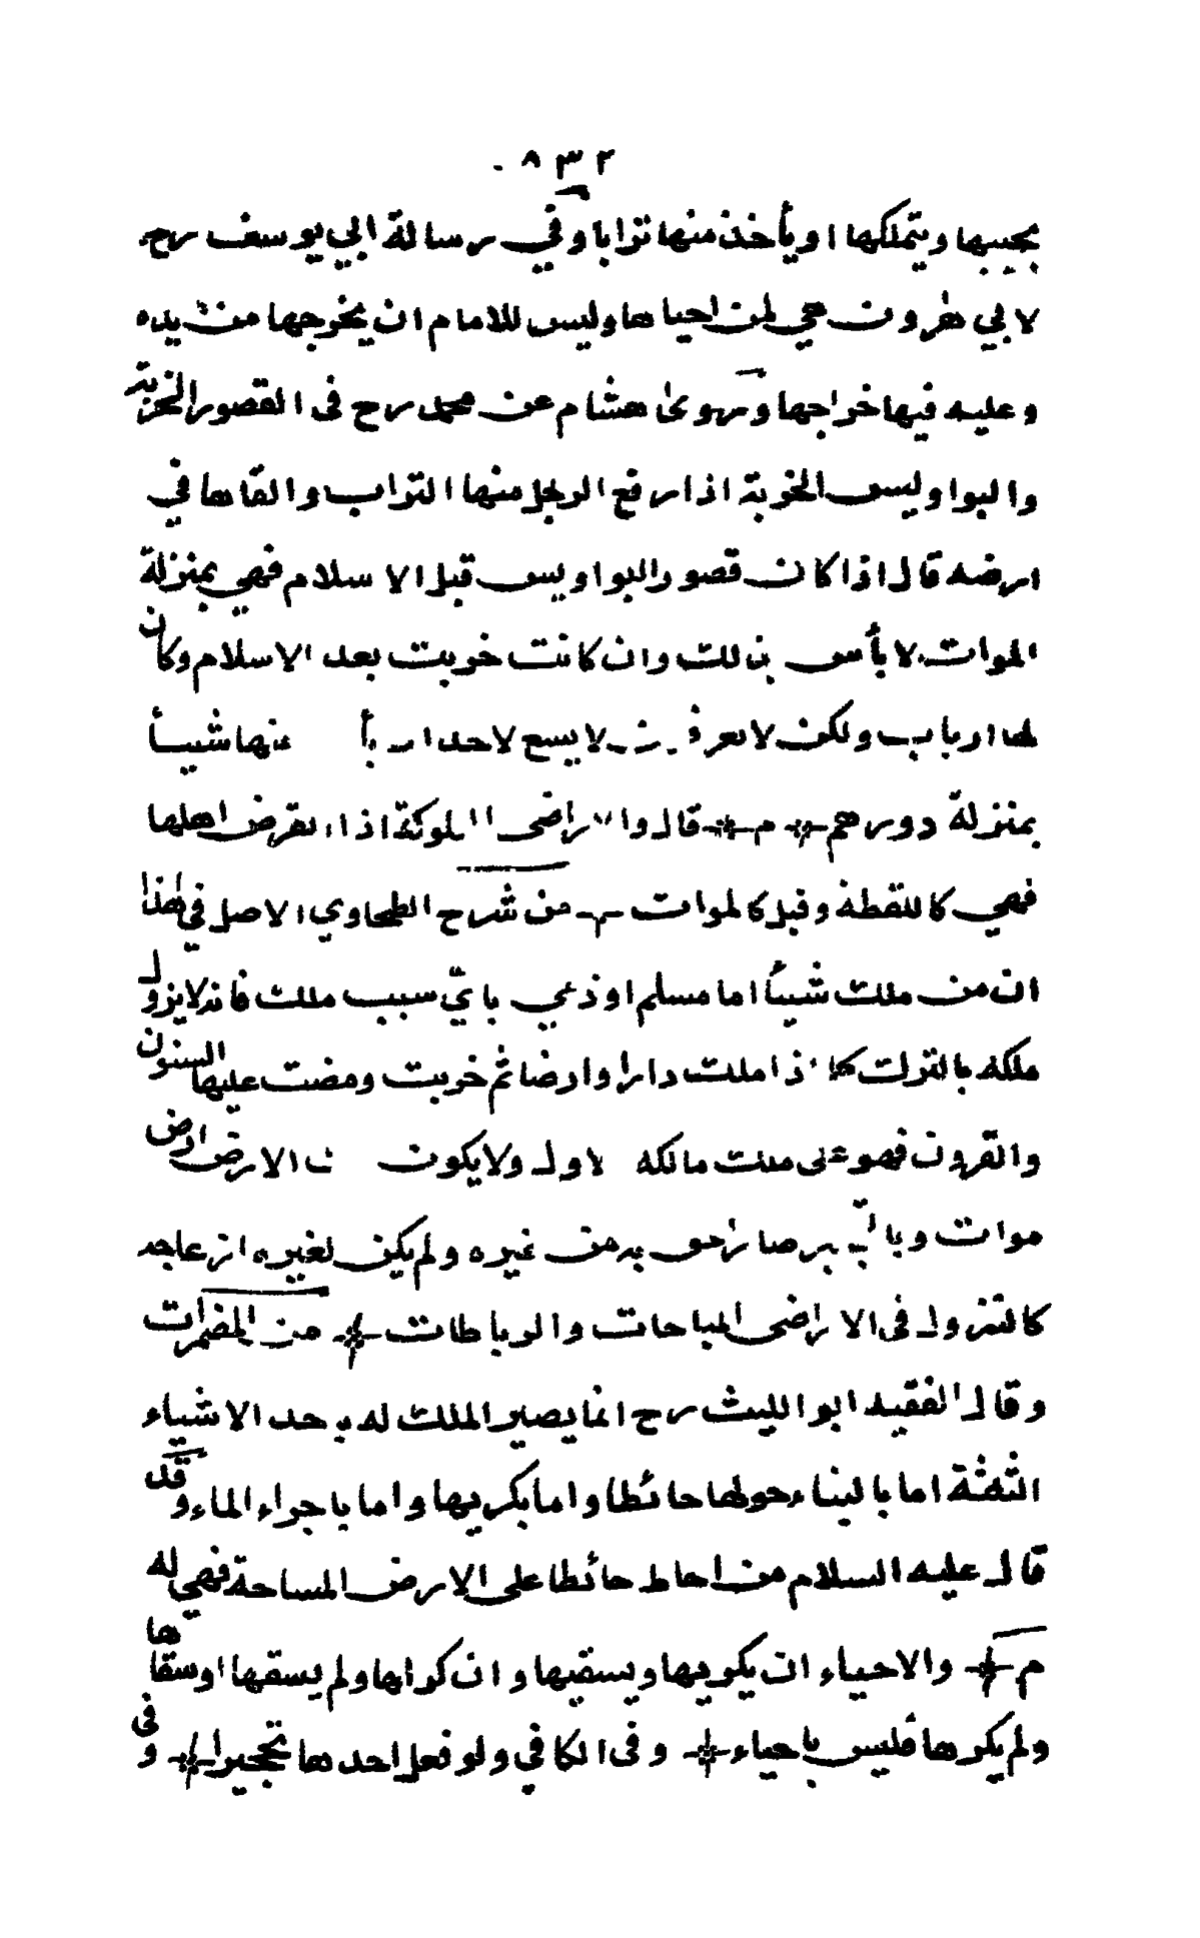 ٨٣٢
يحييها ويتملكها او يأخذ منها ترابا وفي رسالة ابي يوسف رح
لا بي هٰرون هي لمن احياها وليس للامام ان يخرجها من يده
وعليه فيها خراجها وروىٰ هشام عن محمد رح فى القصور الخربة
والبوا وليس الخربة اذا رفع الرجل منها التراب والقاها في
ارضه قال اذا كان قصور البوا ويس قبل الا سلام فهي بمنزلة
الموات لا بأس بذلك وان كانت خربت بعد الاسلام وكان
لها ارباب ولكن لا يسع لاحد منها شيئأ
بمنزلة دورهم م قالوا الاراضى المملوكة اذا انقرض اهلها
فهي كاللقطة وقيل كالموات م من شرح الطحاوي الاصل في هٰذا
ان من ملك شيئأ اما مسلم او ذمي بايّ سبب ملك فانه لايزول
ملكه بالترك كما اذا ملك دارا وارضا ثم خربت ومضت عليها السنون
والقرون فهو على ملك مالكه الاول ولا يكون الارض ارض
موات وبا صار احق به من غيره ولم يكن لغيره ازعاجه
كالنزول فى الا راضى المباحات والرباطات م من المضمرات
وقال الفقيه ابو الليث رح انما يصير الملك له باحد الاشياء
الثلثة اما بالبناء حولها حائطا واما بكريها واما باجراء الماء وقد
قال عليه السلام من احاط حائطا على الارض المساحة فهي له
م والاحياء ان يكريها ويسقيها وان كراها ولم يسقها او سقاها
ولم يكرها فليس باحياء وفى الكافي ولو فعل احدهما تحجيرا م وفى